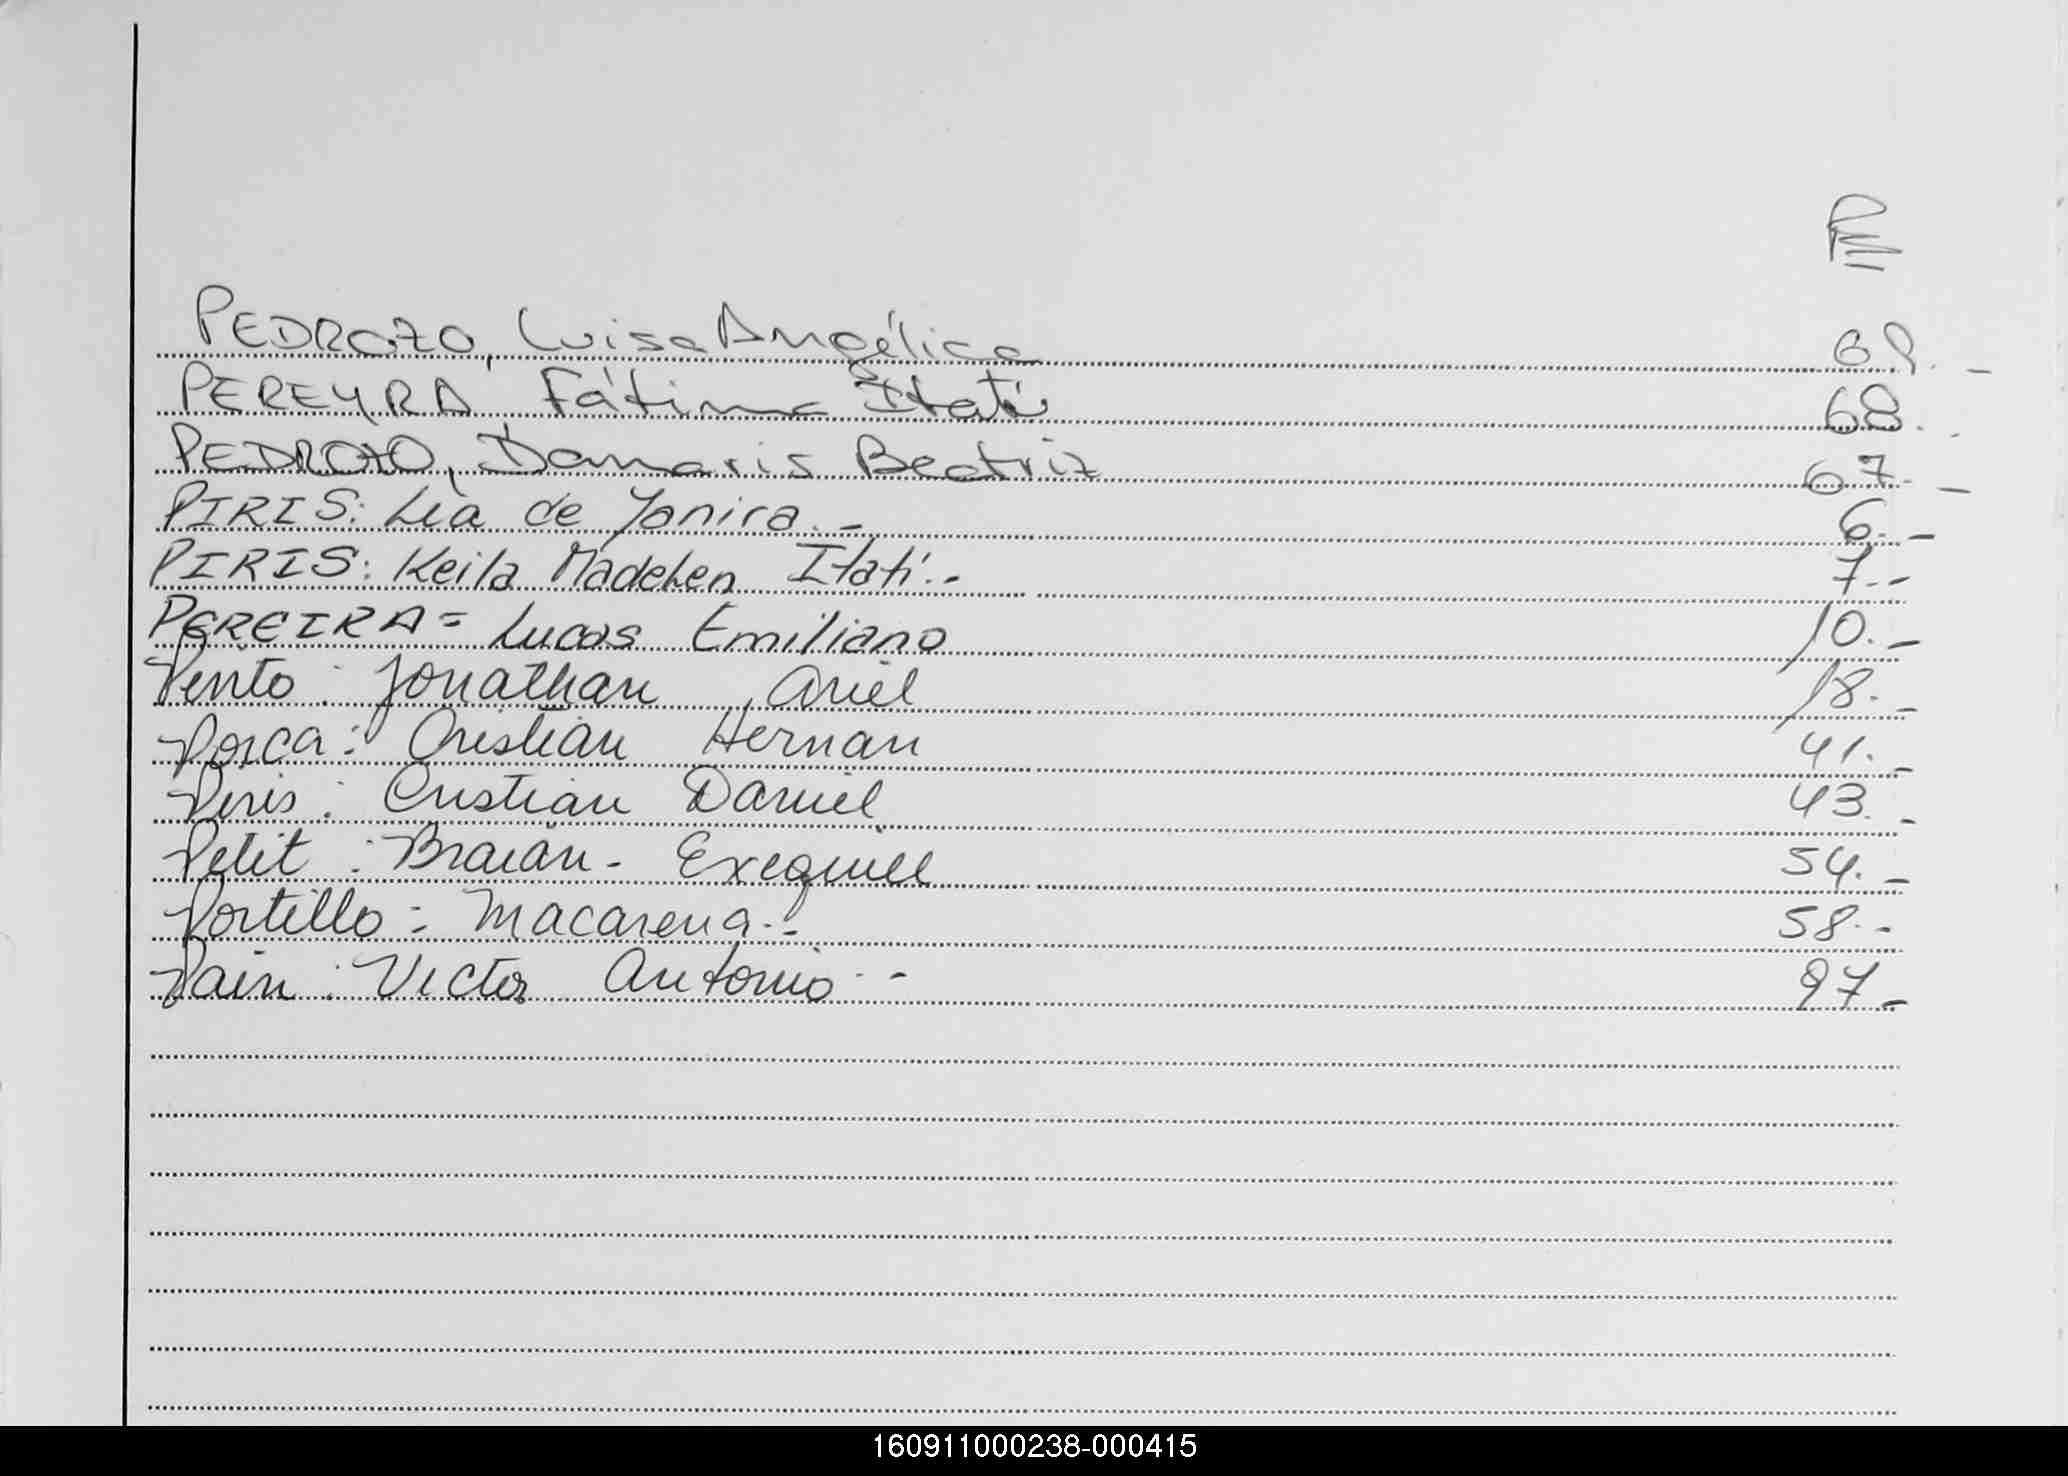 PEDROZO, Luisa Angélica 69.-
PEREYRA Fátima Itatí 68.-
PEDROZO, Damaris Beatriz 67.-
PIRIS: Lía de Yanira.- 6.-
PIRIS: Keila Madelen Itatí.- 7.-
PEREIRA= Lucas Emiliano 10.-
Pinto: Jonathan Ariel 18.-
Porca: Cristian Hernan 41.-
Piris: Cristian Daniel 43.-
Petit: Braian- Exequiel 54.-
Portillo: Macarena.- 58.-
Pain: Victor Antonio.- 97.-
160911000238-000415